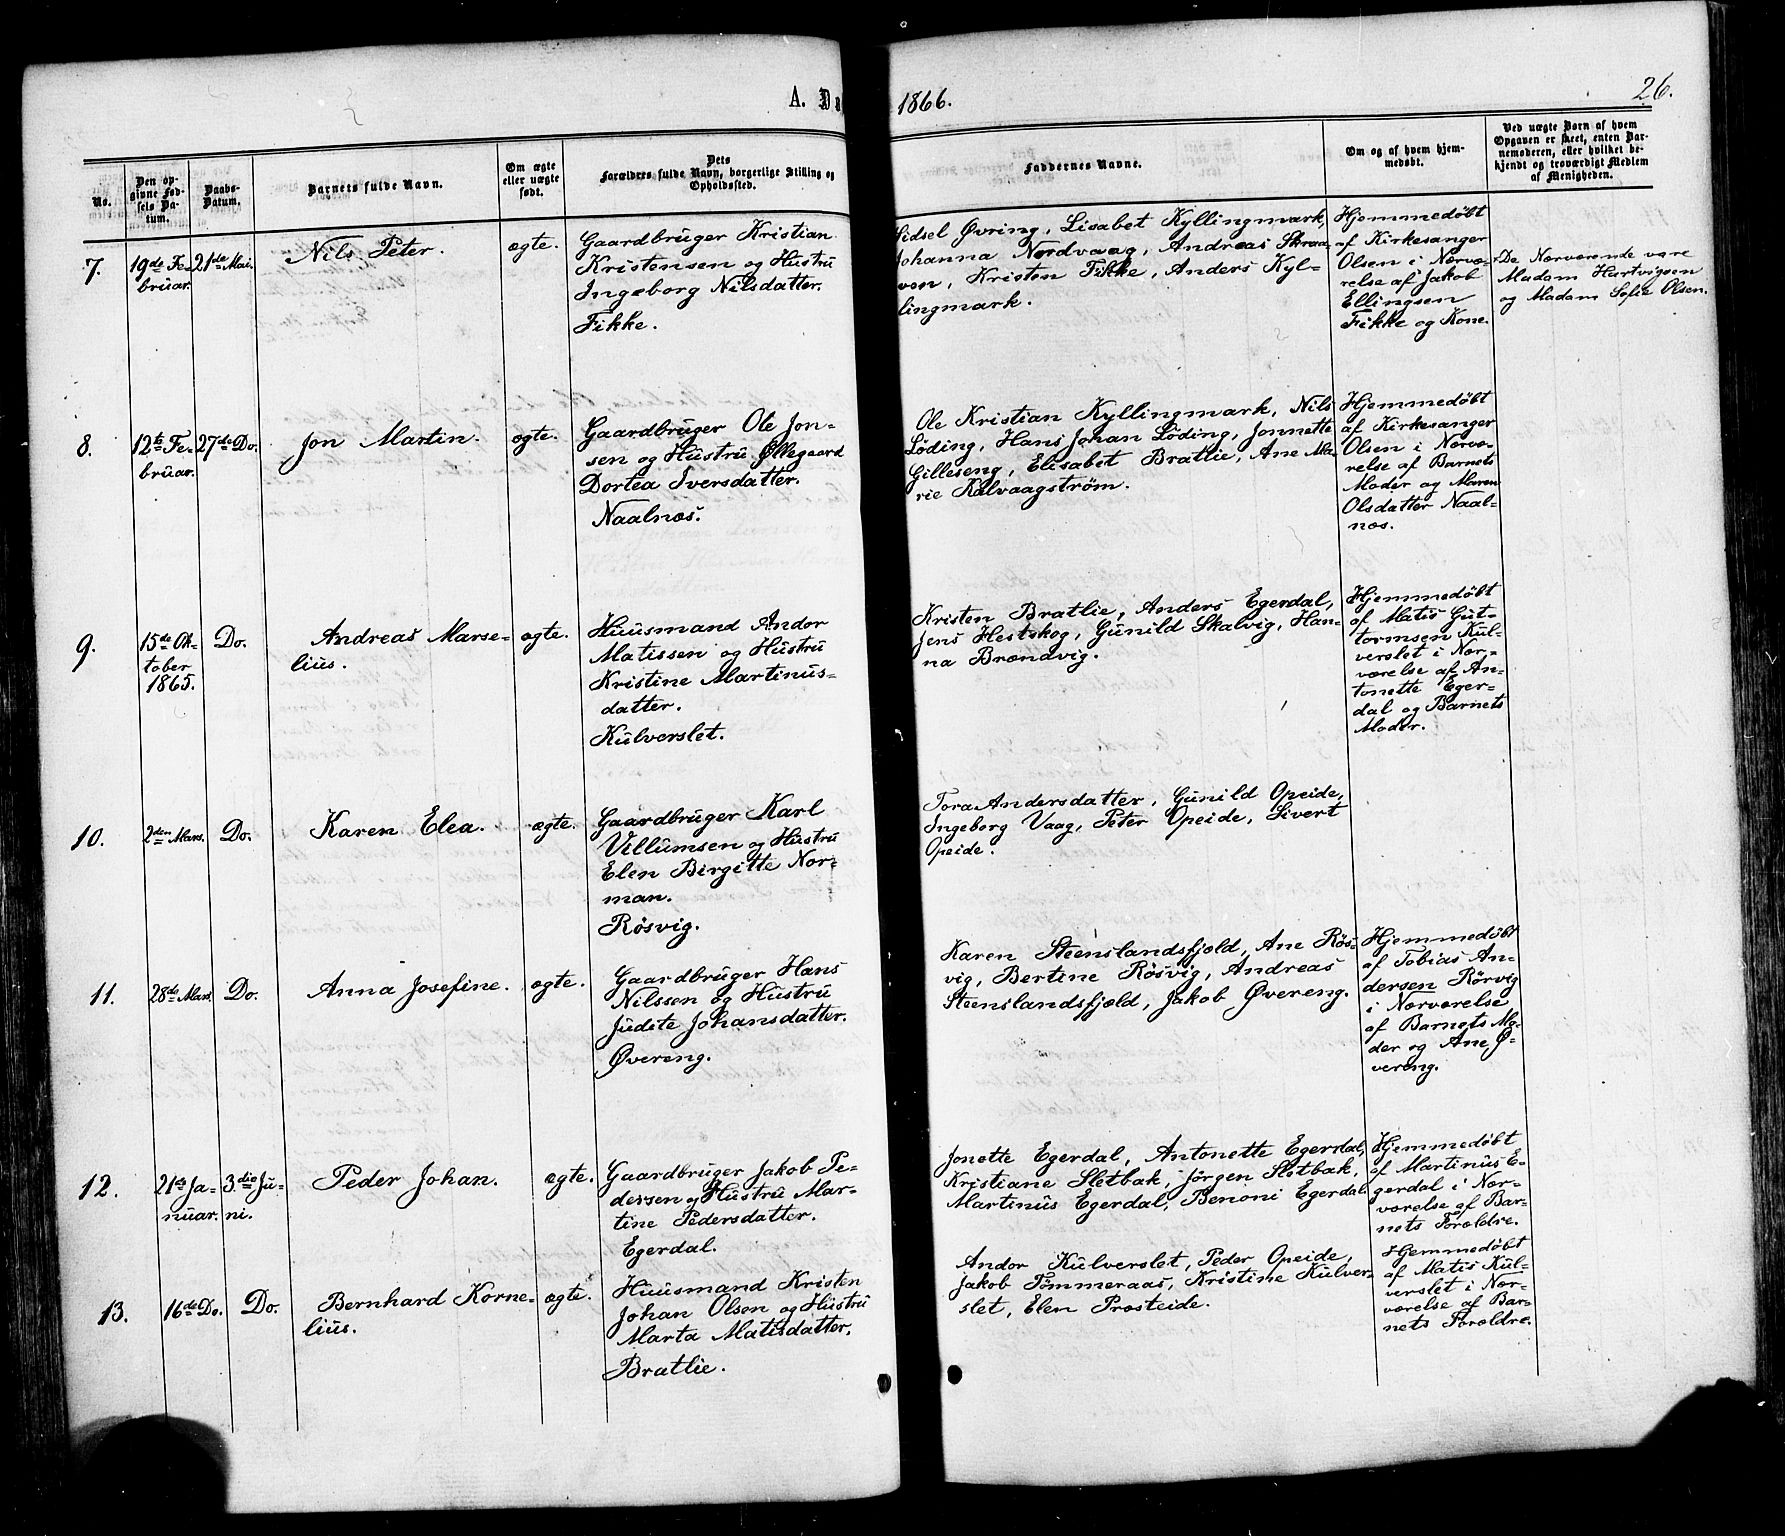 A. Dø
1866.
26.
No.
Den op-
givne Fød-
sels Da-
tum.
Daabs-
Datum.
Barnets fulde Navn.
Om ægte
eller uægte
født.
Dets
Forældres fulde Navn, borgerlige Stilling og
Opholdssted.
Faddernes Navne.
Om og af hvem hjem-
medøbt.
Ved uægte Børn af hvem
Opgaven er skeet, enten Bar-
nemoderen, eller hvilket be-
kjendt og troværdigt Medlem
af Menigheden.
7.
19de Fe-
bruar.
21de Mai.
Nils Peter.
ægte.
Gaardbruger Kristian
Kristensen og Hustru
Ingeborg Nilsdatter.
Fikke.
Sidsel Øvring, Lisabet Kyllingmark,
Johanna Nordvaag, Andreas Skraa-
ven, Kristen Fikke, Anders Kyl-
lingmark.
Hjemmedøbt
af Kirkesanger
Olsen i Nærvæ-
relse af Jakob
Ellingsen
Fikke og Kone.
De Nærværende vare
Madam Hartvigsen
og Madam Sofie Olsen.
8.
12te Fe-
bruar.
27de Do.
Jon Martin.
ægte.
Gaardbruger Ole Jon-
sen og Hustru Øllegaard
Dortea Iversdatter.
Naalnæs.
Ole Kristian Kyllingmark, Nils
Løding, Hans Johan Løding, Jonnette
Gilleseng, Elisabet Bratlie, Ane Ma-
rie Kalvaagstrøm.
Hjemmedøbt
af Kirkesanger
Olsen i Nærvæ-
relse af Barnets
Moder og Maren
Olsdatter Naal-
næs.
9.
15de Ok-
tober
1865.
Do.
Andreas Marse-
lius.
ægte.
Huusmand Andor
Matissen og Hustru
Kristine Martinus-
datter.
Kulverslet.
Kristen Bratlie, Anders Egerdal,
Jens Hestskog, Gunild Skalvig, Han-
na Brændvig.
Hjemmedøbt
af Matis Gut-
tormsen Kul-
verslet i Nær-
værelse af An-
tonette Eger-
dal og Barnets
Moder.
10.
2den Mars.
Do.
Karen Elea.
ægte.
Gaardbruger Karl
Villumsen og Hustru
Elen Birgitte Nor-
man.
Røsvig.
Tora Andersdatter, Gunild Opeide,
Ingeborg Vaag, Peter Opeide, Sivert
Opeide.
11.
28de Mars.
Do.
Anna Josefine.
ægte.
Gaardbruger Hans
Nilssen og Hustru
Judite Johansdatter.
Øvereng.
Karen Steenslandsfjæld, Ane Røs-
vig, Bertine Røsvig, Andreas
Steenslandsfjæld, Jakob Øvereng.
Hjemmedøbt
af Tobias An-
dersen Rørvig
i Nærværelse
af Barnets Mo-
der og Ane Ø-
vereng.
12.
21de Ja-
nuar.
3die Ju-
ni.
Peder Johan.
ægte.
Gaardbruger Jakob Pe-
dersen og Hustru Mar-
tine Pedersdatter.
Egerdal.
Jonette Egerdal, Antonette Egerdal,
Kristiane Sletbak, Jørgen Sletbak,
Martinus Egerdal, Benoni Egerdal.
Hjemmedøbt
af Martinus E-
gerdal i Nær-
værelse af Bar-
nets Forældre.
13.
16de Do.
Do.
Bernhard Korne-
lius.
ægte.
Huusmand Kristen
Johan Olsen og Hustru
Marta Matisdatter.
Bratlie.
Andor Kulverslet, Peder Opeide,
Jakob Tømmeraas, Kristine Kulver-
slet, Elen Prosteide.
Hjemmedøbt
af Matis Kul-
verslet i Nær-
værelse af Bar-
nets Forældre.